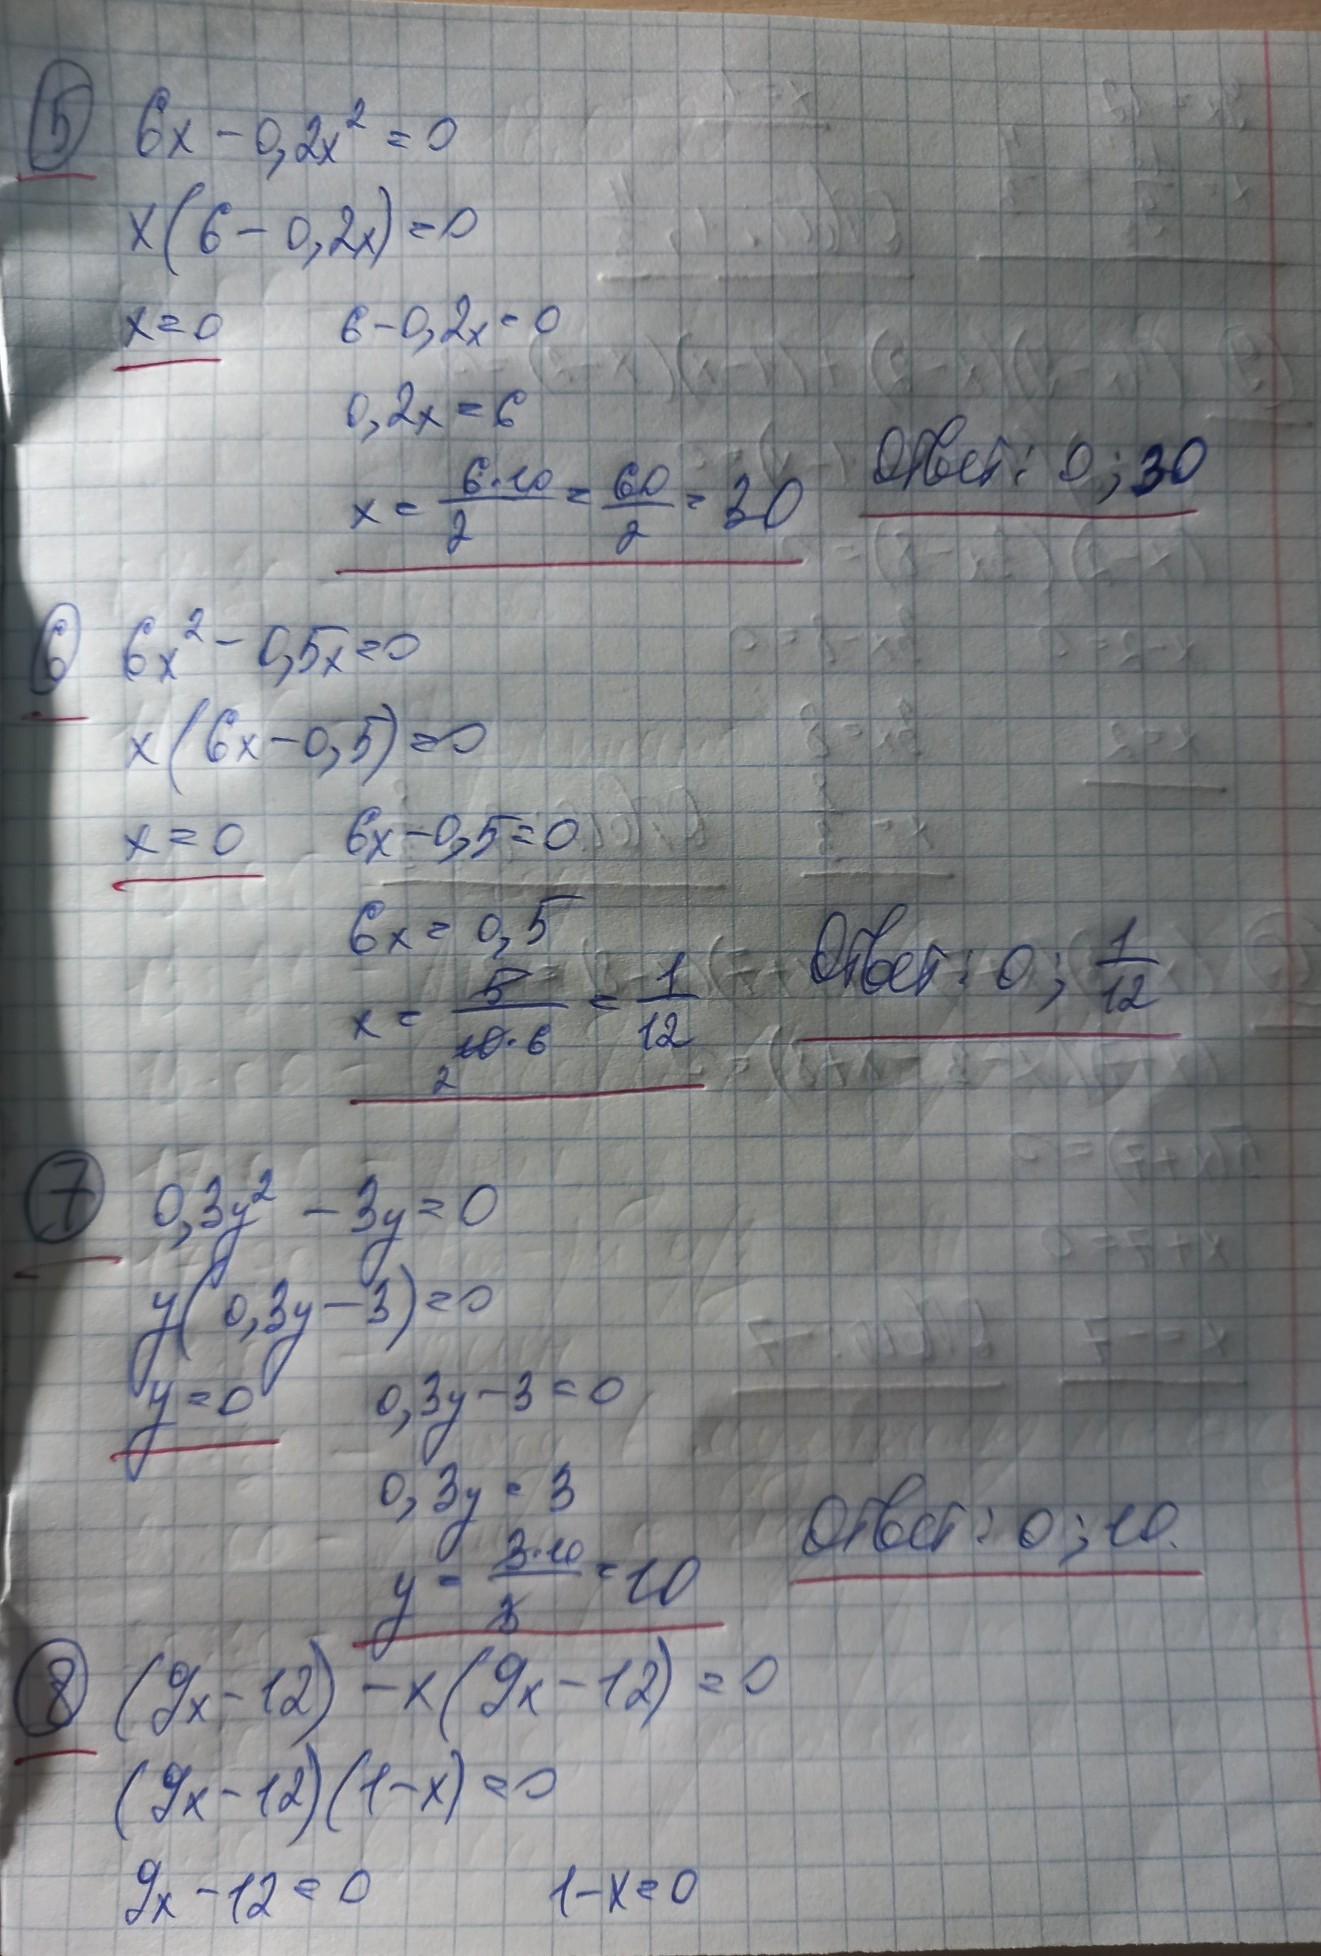 5 6x - 0,2x² = 0
x(6 - 0,2x) = 0
x = 0 6 - 0,2x = 0
0,2x = 6
x = 6·10/2 = 60/2 = 30 Ответ: 0; 30
6 6x² - 0,5x = 0
x(6x - 0,5) = 0
x = 0 6x - 0,5 = 0
6x = 0,5
x = 5/10·6 = 1/12 Ответ: 0; 1/12
2
7 0,3y² - 3y = 0
y(0,3y - 3) = 0
y = 0 0,3y - 3 = 0
0,3y = 3
y = 3·10/3 = 10 Ответ: 0; 10.
8 (9x - 12) - x(9x - 12) = 0
(9x - 12)(1 - x) = 0
9x - 12 = 0 1 - x = 0